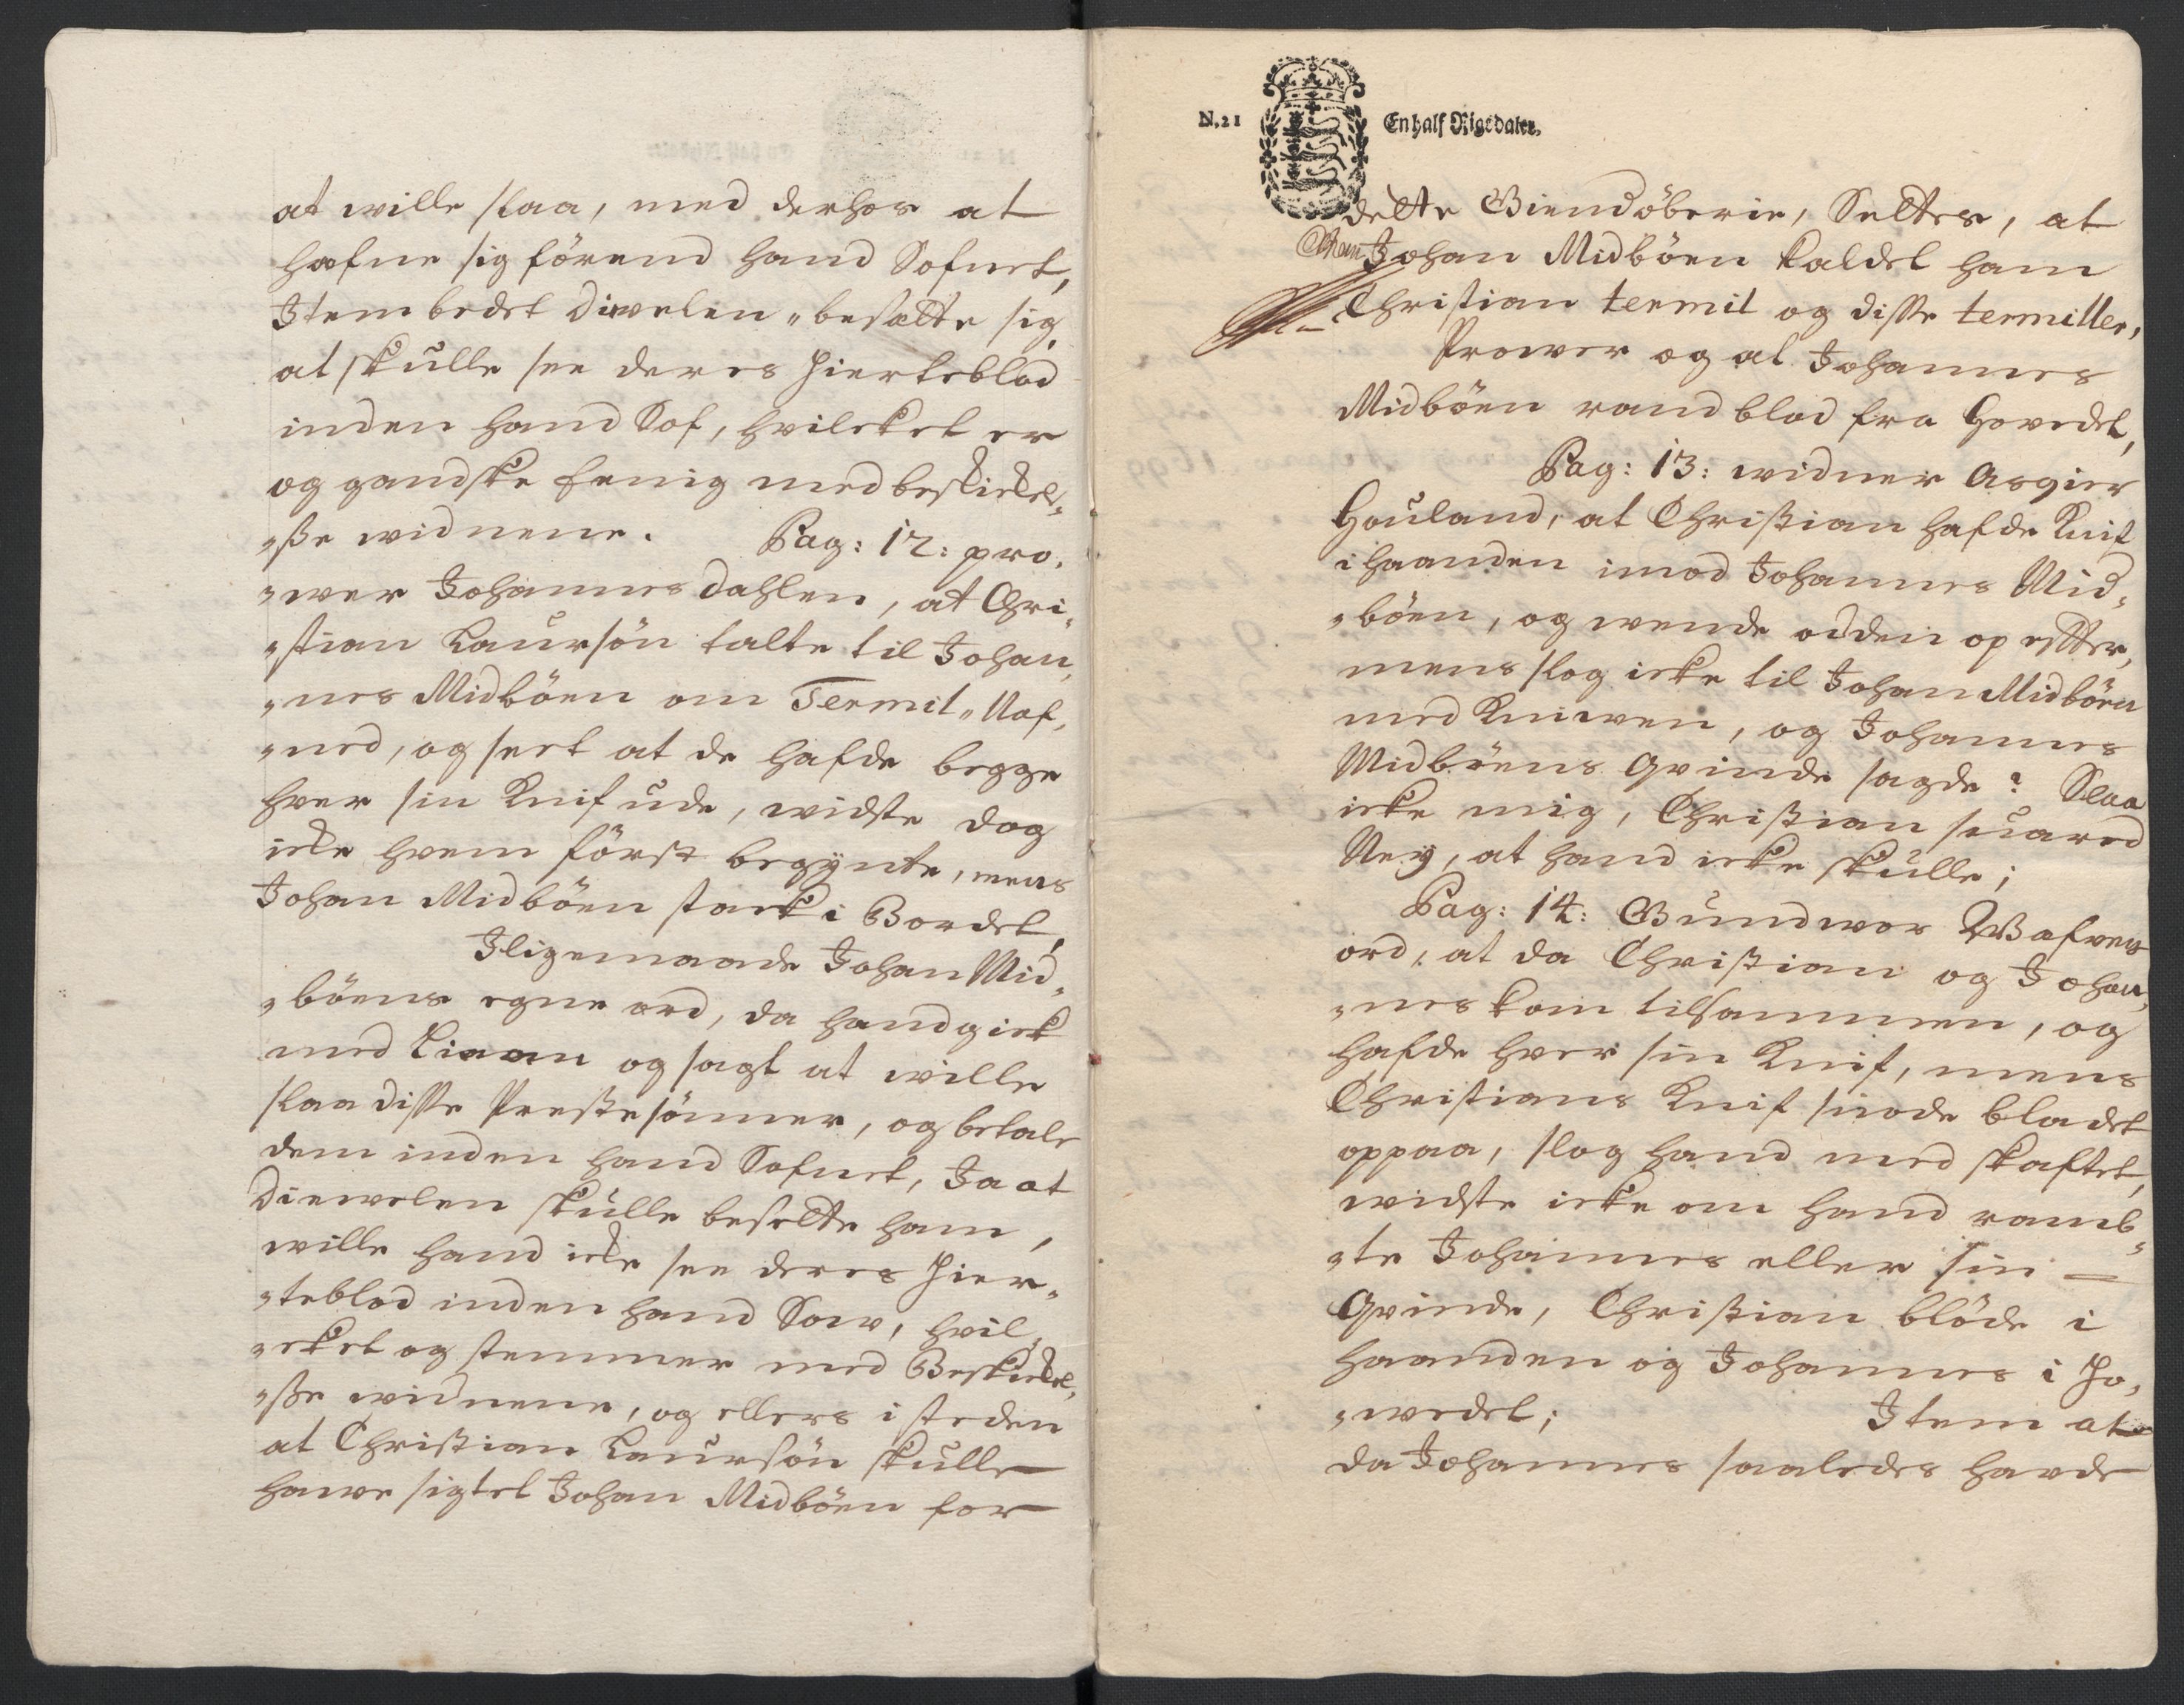 at wille slaa, med derhos at
hafne sig förend hand Sofnet,
Item bedet Diwelen besatte sig,
at skulle see deres hierteblod
inden hand Sof, hvilcket er
og gandske eenig med beskickel„
„ße widnene. Pag: 12: pro„
„wer Johannes Dahlen, at Chri„
„stian Laursön talte til Johan„
„nes Midböen om Termit„ Naf„
„ned, og seet at de hafde begge
hver sin Knif ude, widste dog
icke hvem först begÿnte, mens
Johan Midböen stack i Bordet,
Iligemaade Johan Mid„
„böens egne ord, da hand gick
med og sagt at wille
slaa disse Prestesönner, og betale
dem inden hand Sofnet, Ja at
Diewelen skulle besette ham,
wille hand icke see deres hier„
„teblod inden hand Sow, hvil„
„cket og stemmer med Beskickel„
„ße widnene, og ellers i steden
at Christian Laursön skulle
hawe sigtet Johan Midböen for
N. 21 En half Rigsdaler.
dette Giendöberie, Settes, at
Johan Midböen kaldet ham
Christian termit og disse termitter,
Prower og at Johannes
Midböen rand blod fra hovedet,
Pag: 13: widner Asgier
Houland, at Christian hafde Knif
i haanden imod Johannes Mid„
„böen, og wende odden op efter,
mens slog icke til Johan Midböen
med Kniwen, og Johannes
Midböens Qvinde sagde: Slaa
icke mig, Christian suared
Neÿ, at hand icke skulle;
Pag: 14: Gundwor
ord, at da Christian og Johan„
„nes kom tilsammen, og
hafde hver sin Knif, mens
Christians Knif snode bladet
oppaa, slog hand med skaftet,
widste icke om hand ramb„
„te Johannes eller sin
Qvinde, Christian blöde i
haanden og Johannes i ho„
„wedet; Item at
da Johannes saaledes havde